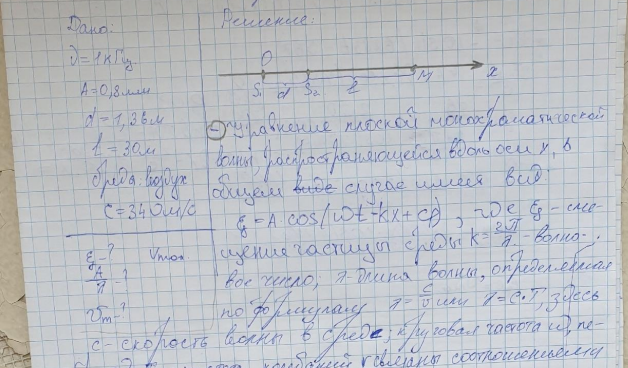 Дано:
ν = 1 кГц
A = 0,8 мм
d = 1,36 м
l = 30 м
Среда: воздух
C = 340 м/с
ξ - ?
A/λ - ?
Vm - ?
Vmax
Решение:
O
S₁ d S₂ l M x
Уравнение плоской монохроматической
волны, распространяющейся вдоль оси x, в
общем виде случае имеет вид:
ξ = A cos(ωt - kx + φ), где ξ - сме-
щение частицы среды k = 2π/λ - волно-
вое число, λ - длина волны, определяемая
по формулам λ = c/ν или λ = c·T, здесь
c - скорость волны в среде, круговая частота ω, пе-
колебаний связаны соотношением